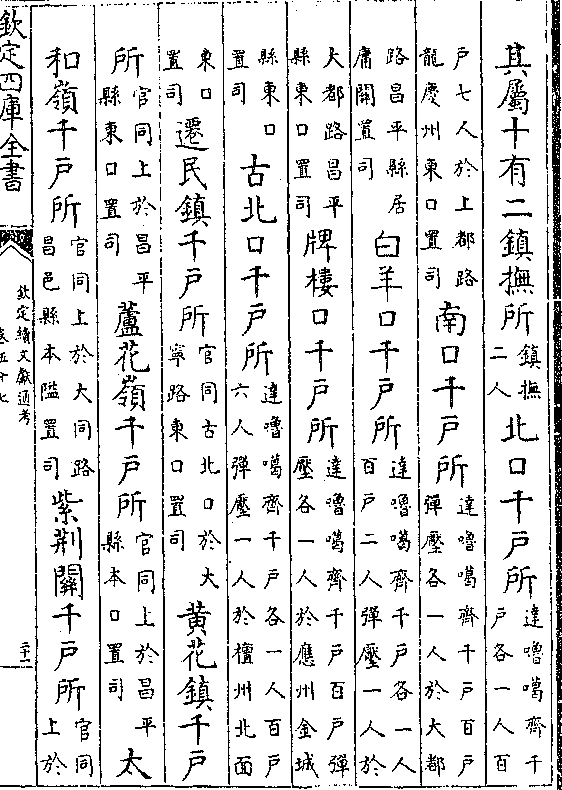 其屬十有二鎮撫所鎮撫二人北口千戶所達嚕噶齊千戶各一人百
戶七人於上都路龍慶州東口置司南口千戶所達嚕噶齊千戶百戶彈壓各一人於大都
路昌平縣居庸關置司白羊口千戶所達嚕噶齊千戶各一人百戶二人彈壓一人於
大都路昌平縣東口置司牌樓口千戶所達嚕噶齊千戶百戶彈壓各一人於應州金城
縣東口置司古北口千戶所達嚕噶齊千戶各一人百戶六人彈壓一人於檀州北面
東口置司遷民鎮千戶所官同古北口於大寧路東口置司黃花鎮千戶
所官同上於昌平縣東口置司蘆花嶺千戶所官同上於昌平縣本口置司太
和嶺千戶所官同上於大同路昌邑縣本隘置司紫荊關千戶所官同上於
欽定四庫全書
欽定續文獻通考
卷五十七